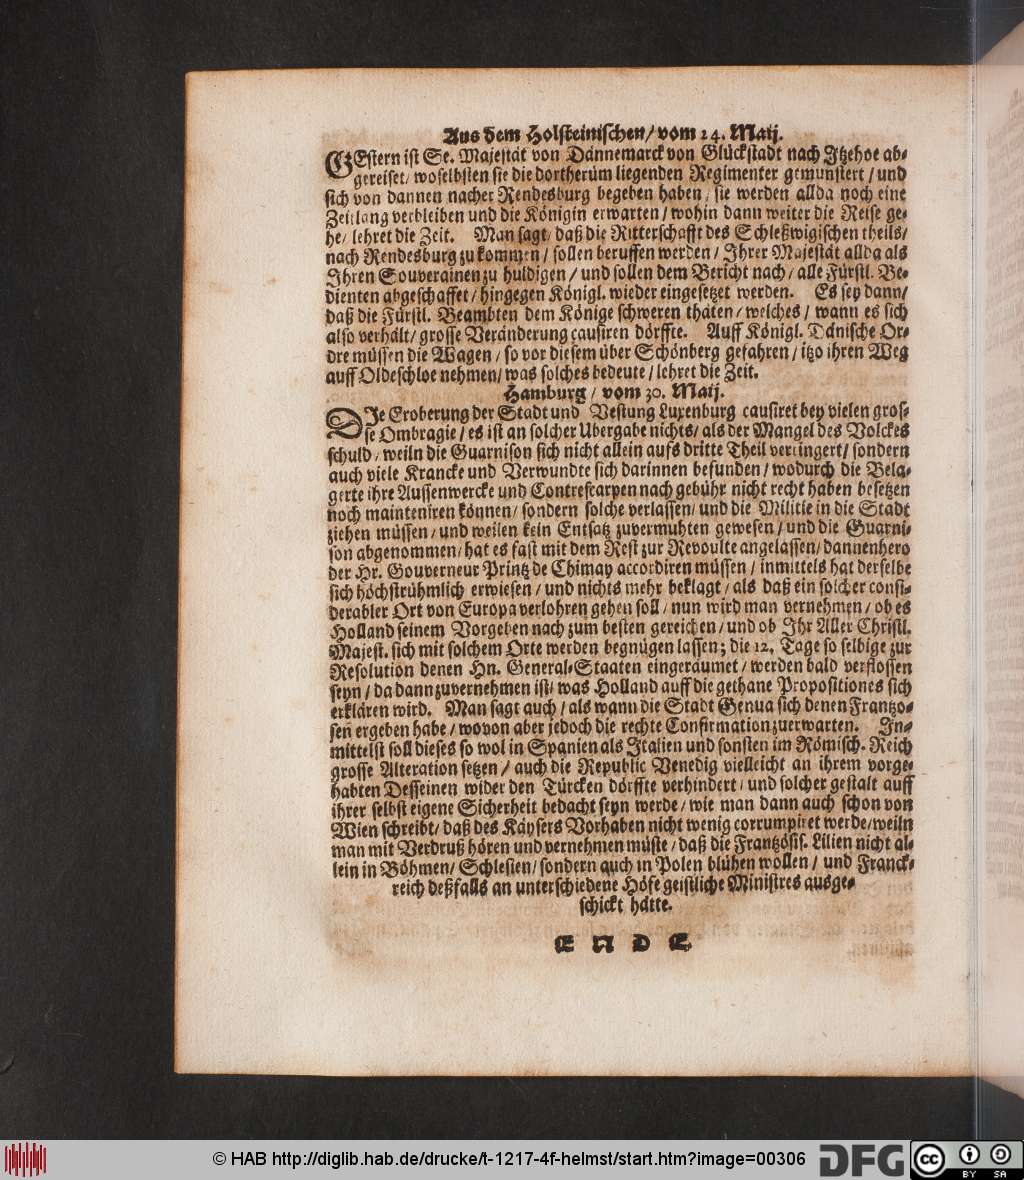 Aus dem Holsteinischen / vom 24. Maij.
GEstern ist Se. Majestät von Dännemarck von Glückstadt nach Itzehoe ab-
gereiset / woselbsten sie die dortherüm liegenden Regimenter gemunstert / und
sich von dannen nacher Rendesburg begeben haben / sie werden allda noch eine
Zeitlang verbleiben und die Königin erwarten / wohin dann weiter die Reise ge-
he / lehret die Zeit. Man sagt / daß die Ritterschafft des Schleßwigischen theils /
nach Rendesburg zu kommen / sollen beruffen werden / Ihrer Majestät allda als
Ihren Souverainen zu huldigen / und sollen dem Bericht nach / alle Fürstl. Be-
dienten abgeschaffet / hingegen Königl. wieder eingesetzet werden. Es sey dann /
daß die Fürstl. Beambten dem Könige schweren thäten / welches / wann es sich
also verhält / grosse Veränderung causiren dörffte. Auff Königl. Dänische Or-
dre müssen die Wagen / so vor diesem über Schönberg gefahren / itzo ihren Weg
auff Oldeschloe nehmen / was solches bedeute / lehret die Zeit.
Hamburg / vom 30. Maij.
DIe Eroberung der Stadt und Vestung Luxenburg causiret bey vielen gros-
se Ombragie / es ist an solcher Ubergabe nichts / als der Mangel des Volckes
schuld / weiln die Guarnison sich nicht allein aufs dritte Theil verringert / sondern
auch viele Krancke und Verwundte sich darinnen befunden / wodurch die Bela-
gerte ihre Aussenwercke und Contrescarpen nach gebühr nicht recht haben besetzen
noch mainteniren können / sondern solche verlassen / und die Militie in die Stadt
ziehen müssen / und weilen kein Entsatz zuvermuhten gewesen / und die Guarni-
son abgenommen / hat es fast mit dem Rest zur Revoulte angelassen / dannenhero
der Hr. Gouverneur Printz de Chimay accordiren müssen / inmittels hat derselbe
sich höchstrühmlich erwiesen / und nichts mehr beklagt / als daß ein solcher consi-
derabler Ort von Europa verlohren gehen soll / nun wird man vernehmen / ob es
Holland seinem Vorgeben nach zum besten gereichen / und ob Ihr Aller Christl.
Majest. sich mit solchem Orte werden begnügen lassen; die 12. Tage so selbige zur
Resolution denen Hn. General-Staaten eingeräumet / werden bald verflossen
seyn / da dann zuvernehmen ist / was Holland auff die gethane Propositiones sich
erklären wird. Man sagt auch / als wann die Stadt Genua sich denen Frantzo-
sen ergeben habe / wovon aber jedoch die rechte Confirmation zuerwarten. In-
mittelst soll dieses so wol in Spanien als Italien und sonsten im Römisch. Reich
grosse Alteration setzen / auch die Republic Venedig vielleicht an ihrem vorge-
habten Desseinen wider den Türcken dörffte verhindert / und solcher gestalt auff
ihrer selbst eigene Sicherheit bedacht seyn werde / wie man dann auch schon von
Wien schreibt / daß des Käysers Vorhaben nicht wenig corrumpiret werde / weiln
man mit Verdruß hören und vernehmen müste / daß die Frantzösis. Lilien nicht al-
lein in Böhmen / Schlesien / sondern auch in Polen blühen wollen / und Franck-
reich deßfalls an unterschiedene Höfe geistliche Ministres ausge-
schickt hätte.
ENDE
© HAB http://diglib.hab.de/drucke/t-1217-4f-helmst/start.htm?image=00306
DFG
cc BY SA